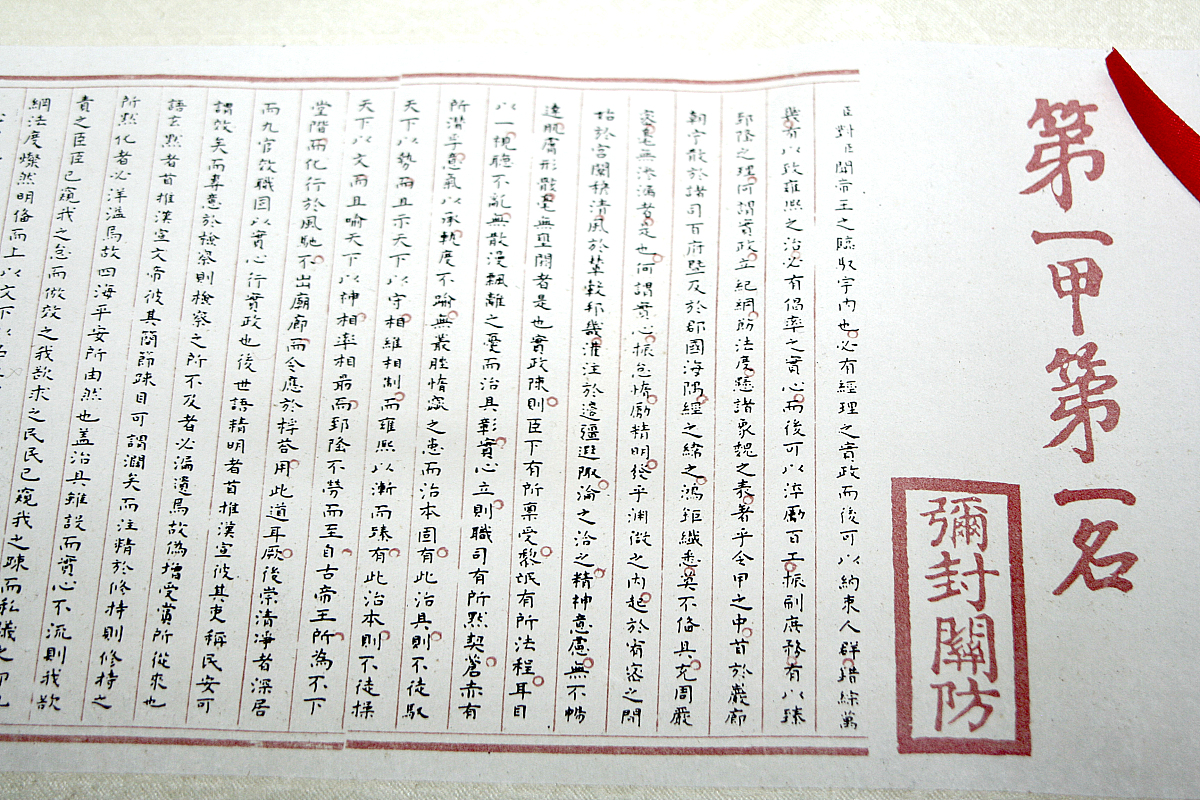 第一甲第一名
彌封關防
臣對臣聞帝王之臨馭宇內也必有經理之實政而後可以約束人群錯綜萬
幾有以致雍熙之治必有倡率之實心而後可以淬勵百工振刷庶務有以臻
郅隆之理何謂實政立紀綱飭法度懸諸象魏之表著乎令甲之中首於巖廊
朝宁散於諸司百府暨及於郡國海隅經之緯之鴻鉅纖悉莫不俻具充周嚴
密毫無滲漏者是也何謂實心振怠惰勵精明發乎淵微之內起於宥密之間
始於宮闈穆清風於輦轂邦畿灌注於邊疆遐陬淪之洽之精神意慮無不暢
達肌膚形骸毫無壅閼者是也實政陳則臣下有所禀受黎氓有所法程耳目
以一視聽不亂無散漫飄離之憂而治具彰實心立則職司有所黙契蒼赤有
所潛孚意氣以承軌度不踰無叢脞惰窳之患而治本固有此治具則不徒馭
天下以勢而且示天下以守相維相制而雍熙以漸而臻有此治本則不徒操
天下以文而且喻天下以神相率相朂而郅隆不勞而至自古帝王所為不下
堂階而化行於風馳不出廟廊而令應於桴荅用此道耳厥後崇清淨者深居
而九官效職固以實心行實政也後世語精明者首推漢宣彼其吏稱民安可
謂效矣而專意於檢察則檢察之所不及者必漏遺焉故偽增受賞所從來也
語玄黙者首推漢文帝彼其簡節疎目可謂濶矣而注精於修持則修持之
所黙化者必洋溢焉故四海平安所由然也蓋治具雖設而實心不流則我欲
責之臣臣已窺我之怠而倣效之我欲求之民民已窺我之疎而私議之即紀
綱法度燦然明俻而上以文下以名